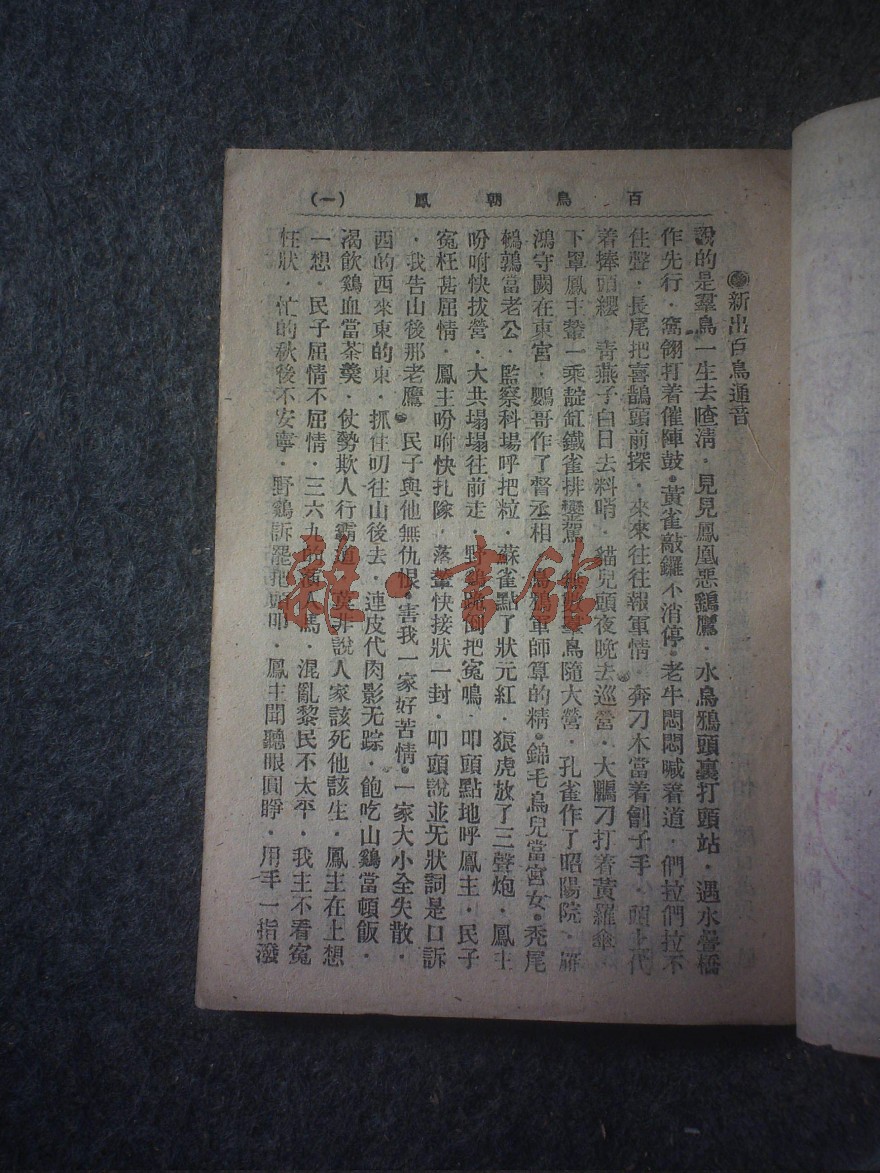 百鳥朝鳳 (一)
◉新出百鳥通音
說的是羣鳥一生去喳淸．見見鳳凰惡鷂鷹．水鳥鴉頭裏打頭站．遇水疊橋
作先行．窩翎打着催陣鼓．黃雀敲鑼不消停．老牛悶悶喊着道．們拉們拉不
住聲．長尾把喜鵲頭前探．來來往往報軍情．奔刁木當着劊子手．頭上代
着捧頭纓 青燕子白日去料哨．貓兒頭夜晚去巡營．大鵰刁打着黃羅傘．
下罩鳳主輦一乘靛缸鐵雀排鑾駕 羣鳥隨大營．孔雀作了昭陽院．
鴻守闕在東宮．鸚哥作了督丞相 鴉軍師算的精．錦毛鳥兒當宮女．禿尾
鵪鶉當老公．監察科場呼把粒．蘇雀點了狀元紅．狼虎放了三聲炮．鳳主
吩咐快拔營．大共塌塌往前走．野鷄跪倒把寃鳴．叩頭點地呼鳳主．民子
寃枉甚屈情．鳳主吩咐快扎隊．落輦快接狀一封．叩頭說並无狀詞是口訴
．我告山後那老鷹．民子與他無仇恨．害我一家好苦情．一家大小全失散．
西的西來東的東．抓住叨往山後去．連皮代肉影无踪．飽吃山鷄當頓飯．
渴飲鷄血當茶羮．仗勢欺人行霸道．莫非說人家該死他該生．鳳主在上想
一想．民子屈情不屈情．三六九 人馬．混亂黎民不太平．我主不看寃
枉狀．忙的秋後不安寧．野鷄訴罷把頭叩．鳳主聞聽眼圓睜．用手一指潑
雜·書館